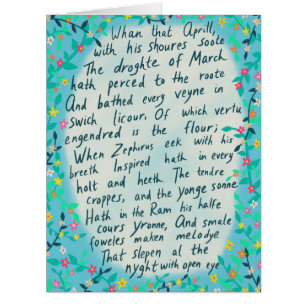 Whan that Aprill,
with his shoures soote
The droghte of March
hath perced to the roote
And bathed every veyne in
swich licour, Of which vertu
engendred is the flour;
When Zephirus eek with his
breeth Inspired hath in every
holt and heeth The tendre
croppes, and the yonge sonne
Hath in the Ram his halfe
cours Yronne, And smale
foweles maken melodye
That slepen al the
nyght with open eye